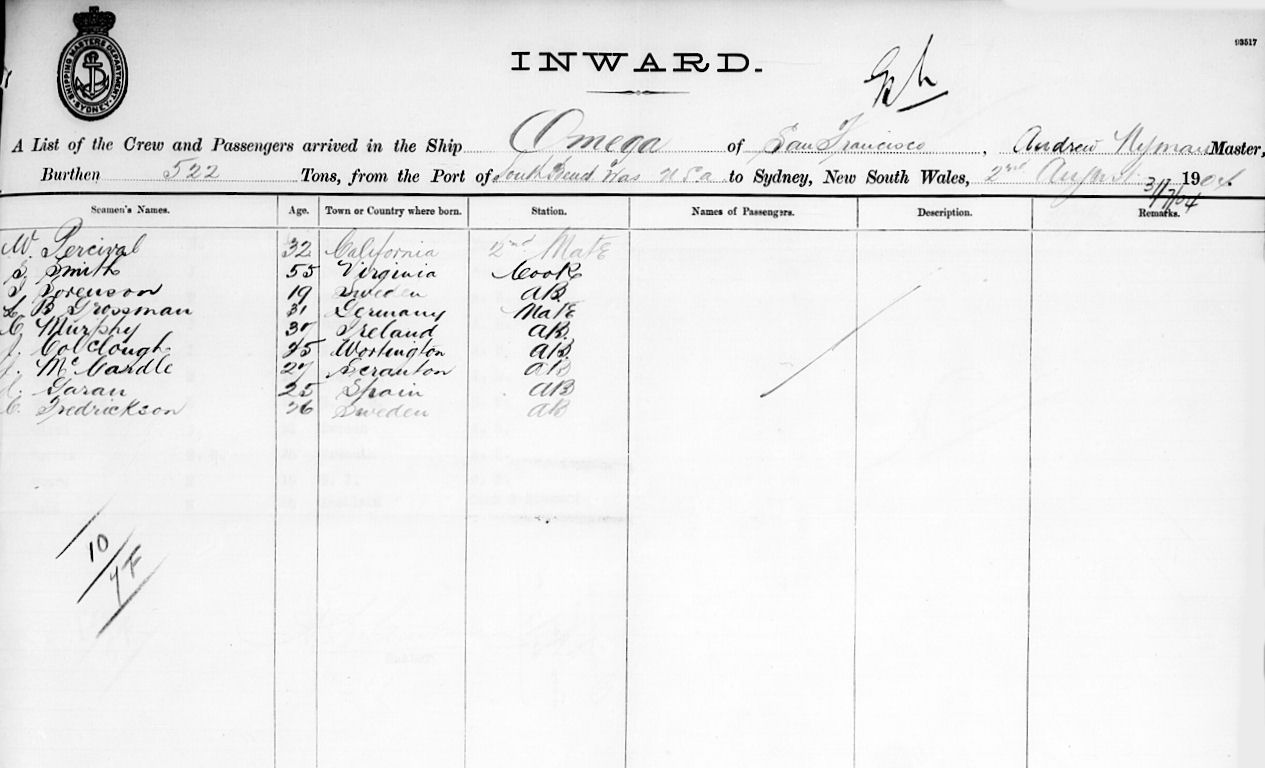 SHIPPING MASTERS DEPARTMENT
SYDNEY
93517
INWARD.
A List of the Crew and Passengers arrived in the Ship Omega of San Francisco, Andrew Nyman Master,
Burthen 522 Tons, from the Port of South Bend Was U S a to Sydney, New South Wales, 2nd August 1904
31/7/04
Seamen's Names. Age. Town or Country where born. Station. Names of Passengers. Description. Remarks.
W. Percival 32 California 2nd Mate
S. Smith 55 Virginia Cook
Sorenson 19 Sweden AB
B Grossman 31 Germany Mate
C. Murphy 37 Ireland AB.
J. Colclough 25 Workington AB.
J. McCardle 27 Scranton AB
Garan 25 Spain AB
C. Fredrickson 26 Sweden AB
10